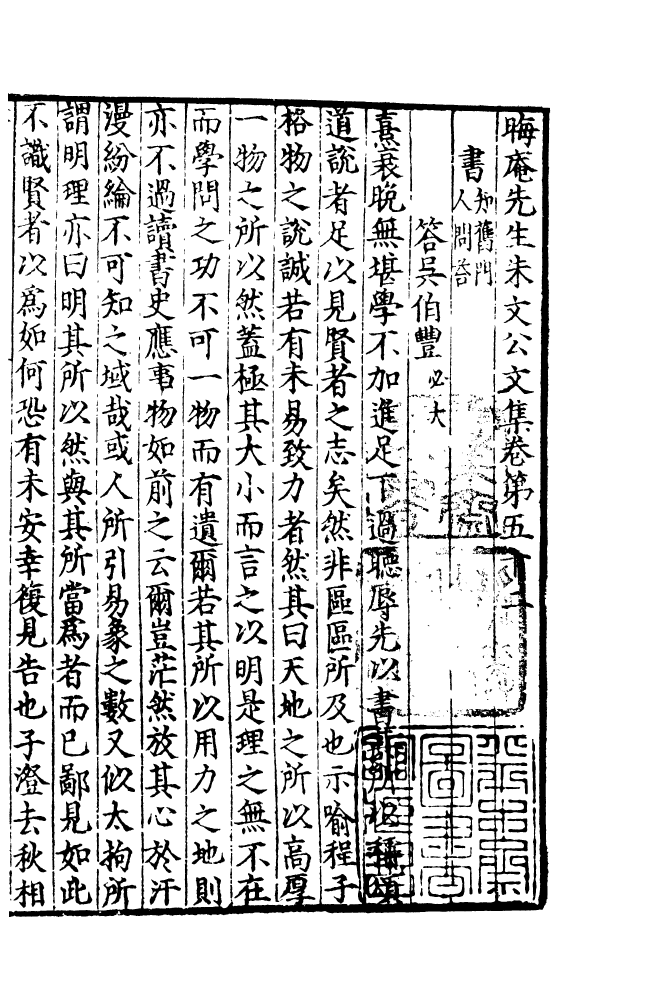 晦庵先生朱文公文集卷第五十二
書知舊門人問答
答吳伯豐必大
熹衰晚無堪學不加進足下過聽辱先以書 稱頌
道說者足以見賢者之志矣然非區區所及也示喻程子
格物之說誠若有未易致力者然其曰天地之所以高厚
一物之所以然蓋極其大小而言之以明是理之無不在
而學問之功不可一物而有遺爾若其所以用力之地則
亦不過讀書史應事物如前之云爾豈茫然放其心於汗
漫紛綸不可知之域哉或人所引易象之數又似太拘所
謂明理亦曰明其所以然與其所當爲者而已鄙見如此
不識賢者以爲如何恐有未安幸復見告也子澄去秋相